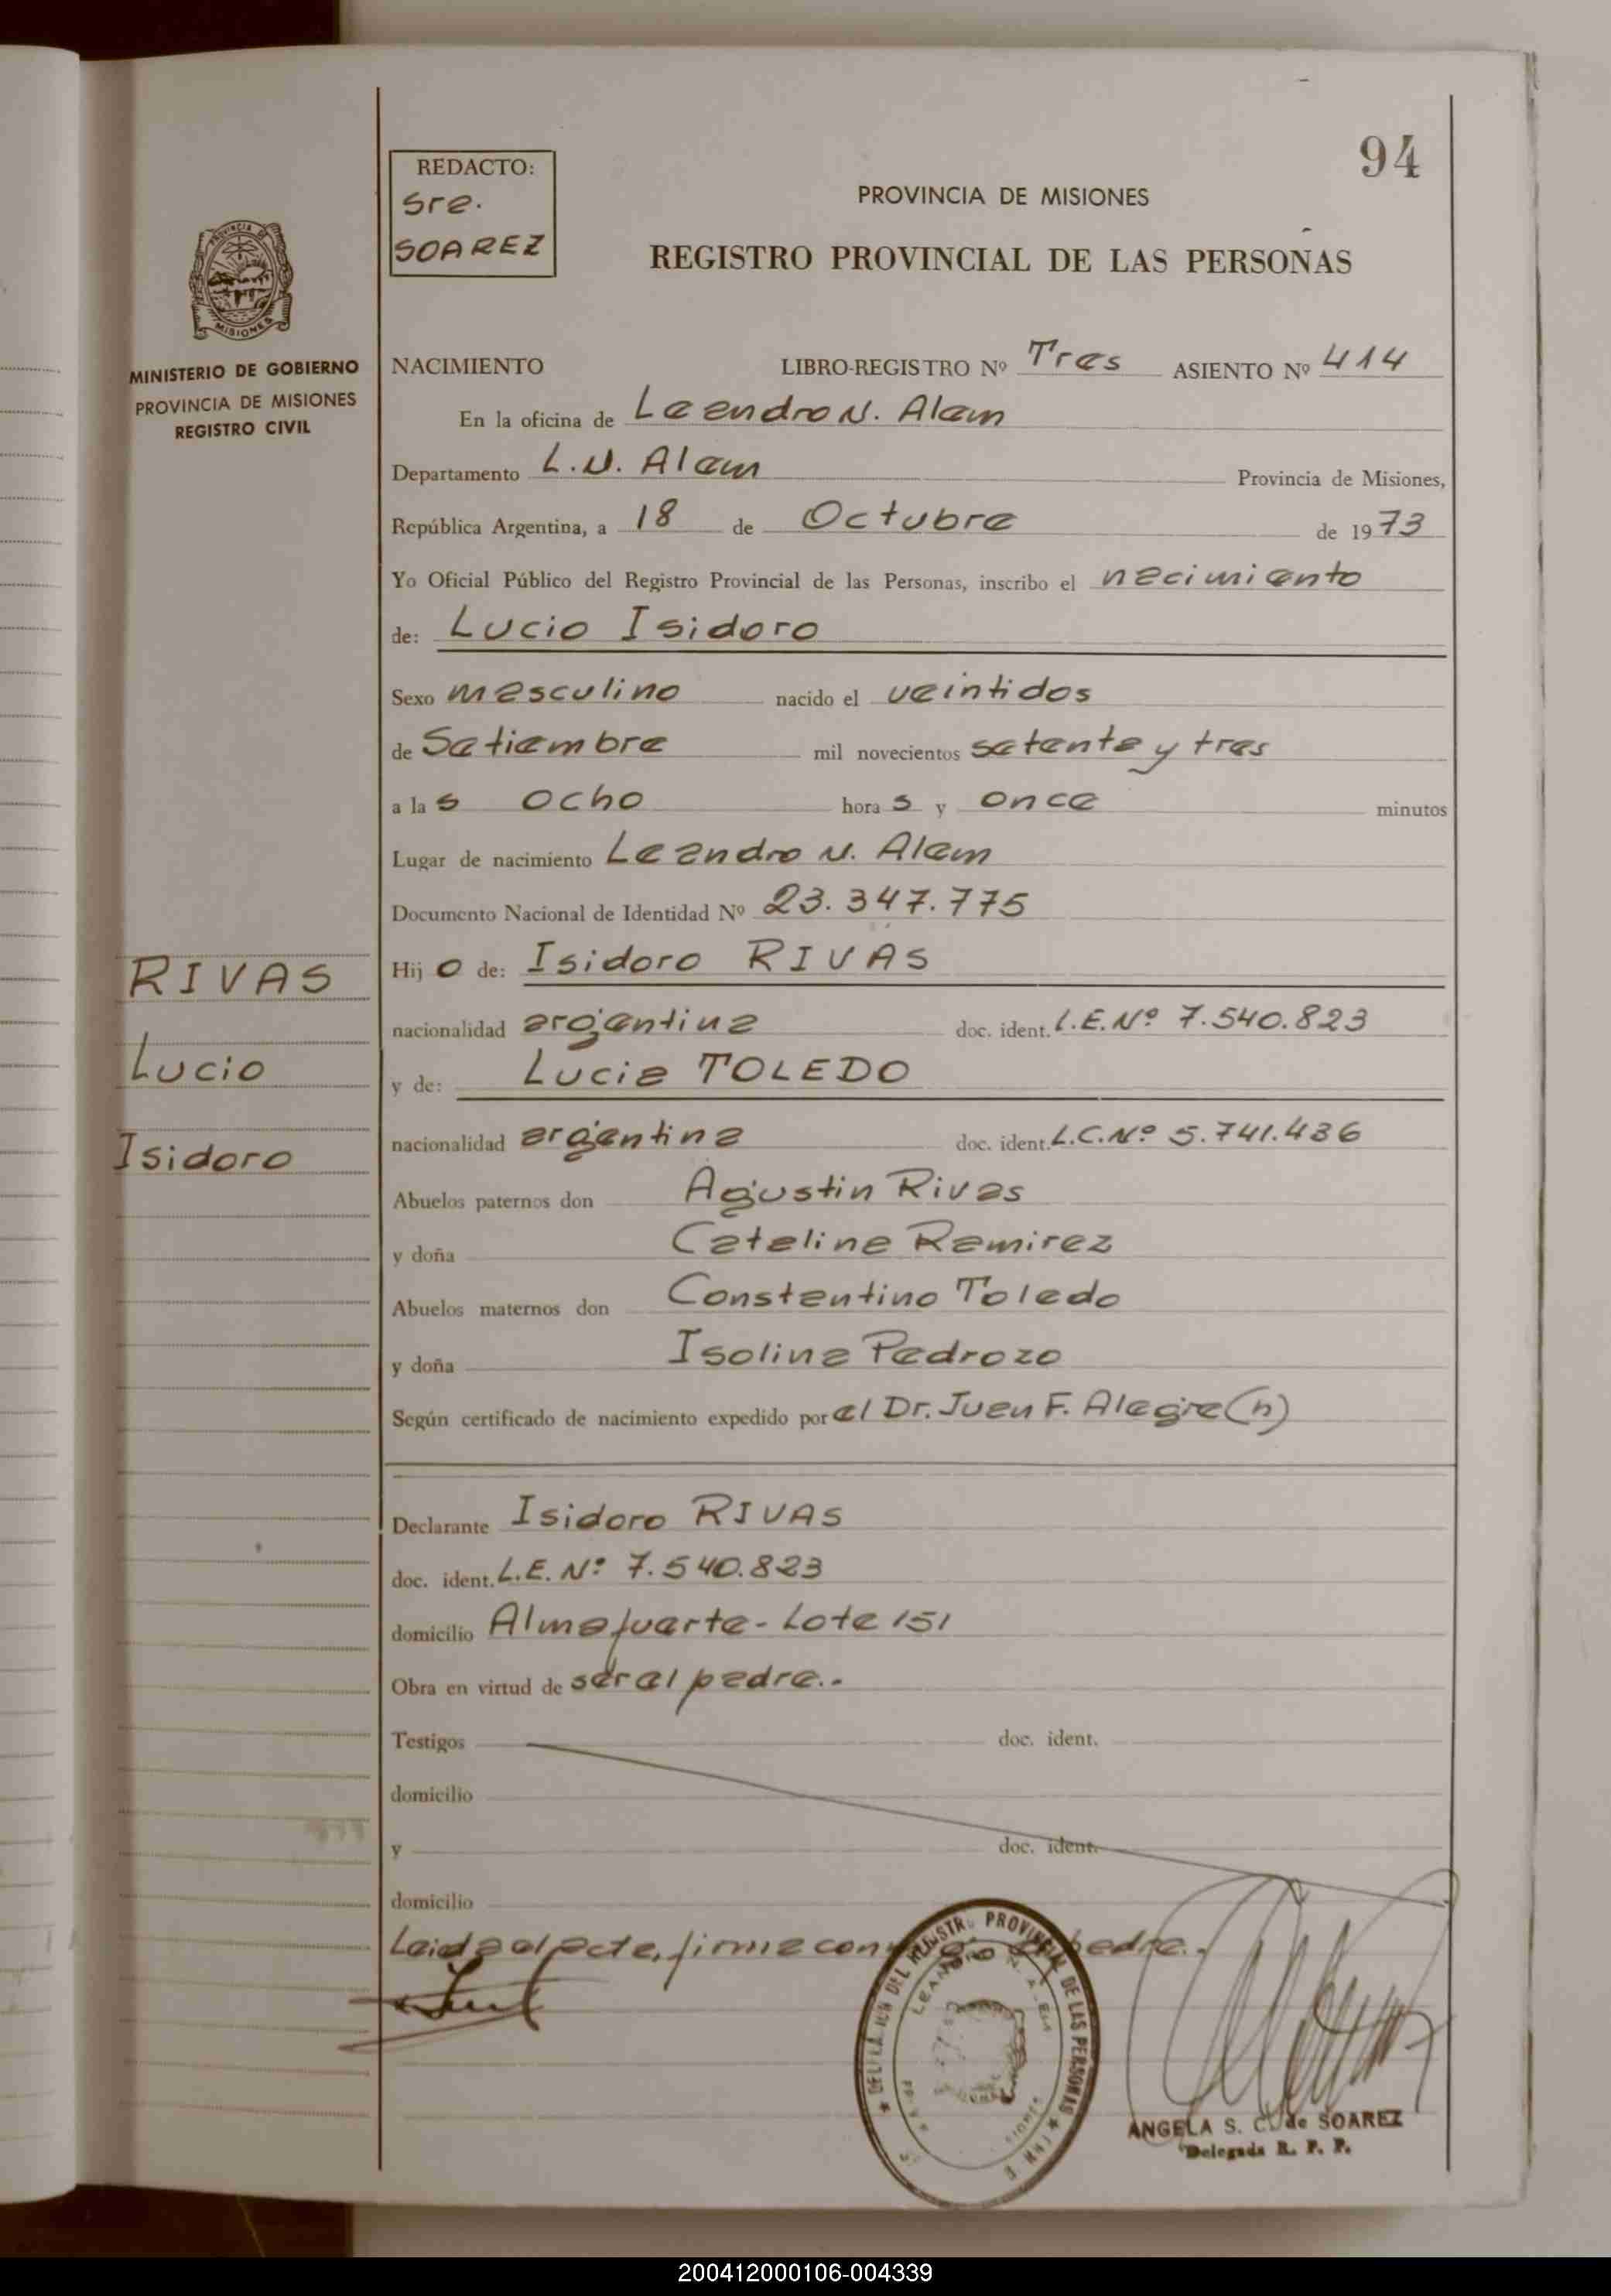 94
REDACTO:
Sra.
SOAREZ
PROVINCIA DE MISIONES
REGISTRO PROVINCIAL DE LAS PERSONAS
MISIONES
MINISTERIO DE GOBIERNO
PROVINCIA DE MISIONES
REGISTRO CIVIL
NACIMIENTO LIBRO-REGISTRO Nº Tres ASIENTO Nº 414
En la oficina de Leandro N. Alem
Departamento L.N. Alem Provincia de Misiones,
República Argentina, a 18 de Octubre de 1973
Yo Oficial Público del Registro Provincial de las Personas, inscribo el nacimiento
de: Lucio Isidoro
Sexo masculino nacido el veintidos
de Setiembre mil novecientos setenta y tres
a las ocho horas y once minutos
Lugar de nacimiento Leandro N. Alem
Documento Nacional de Identidad Nº 23.347.775
Hijo de: Isidoro RIVAS
nacionalidad argentina doc. ident. L.E.Nº 7.540.823
y de: Lucia TOLEDO
nacionalidad argentina doc. ident. L.C.Nº 5.741.436
Abuelos paternos don Agustin Rivas
y doña Catalina Ramirez
Abuelos maternos don Constantino Toledo
y doña Isolina Pedrozo
Según certificado de nacimiento expedido por el Dr. Juan F. Alegre (h)
RIVAS
Lucio
Isidoro
Declarante Isidoro RIVAS
doc. ident. L.E. Nº 7.540.823
domicilio Almafuerte - Lote 151
Obra en virtud de ser el padre..
Testigos doc. ident.
domicilio
y doc. ident.
domicilio
Leida el acta, firma conmigo el padre..
ANGELA S. C. de SOAREZ
Delegada R. P. P.
200412000106-004339